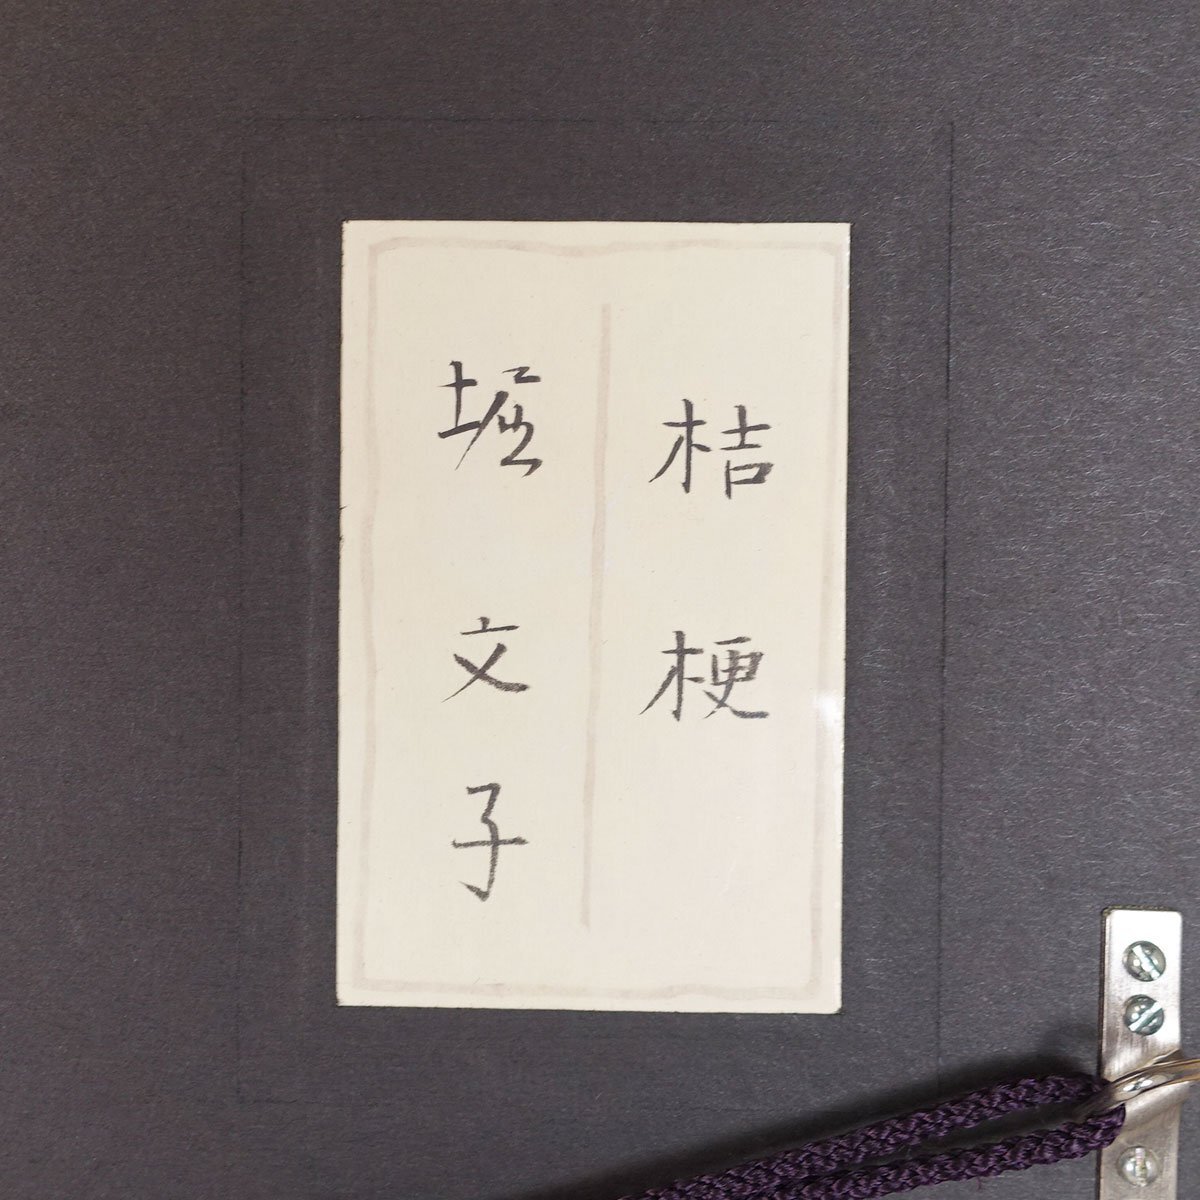 桔梗
堀文子